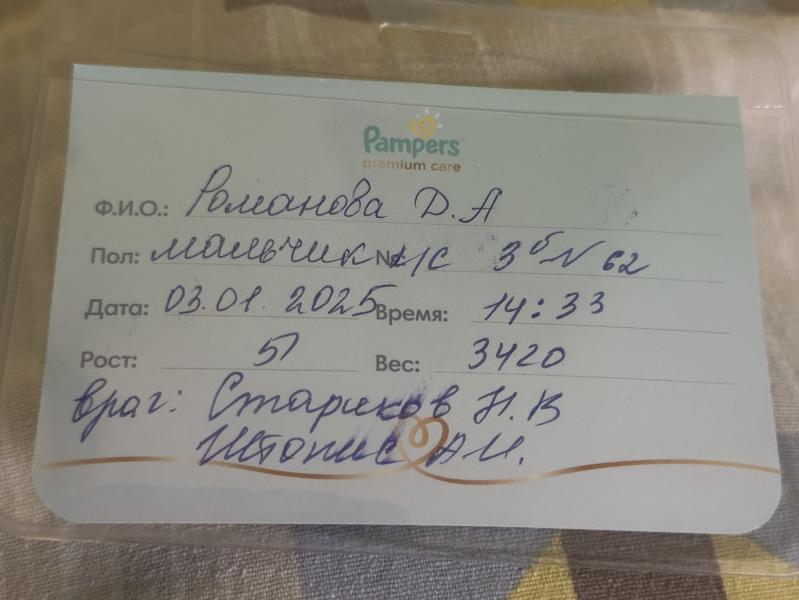 Pampers
premium care
Ф.И.О.: Романова Д.А
Пол: мальчик № к/с 3б N 62
Дата: 03.01.2025 Время: 14:33
Рост: 51 Вес: 3420
врач: Стариков Н.В
А.И.